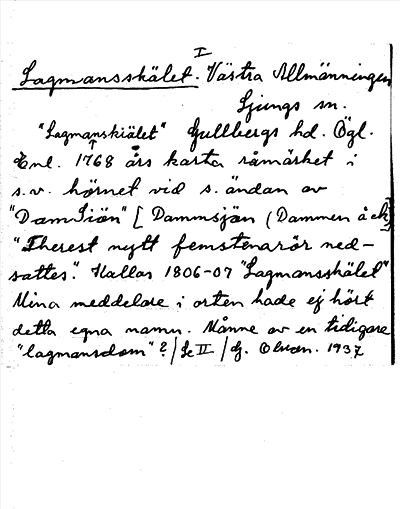 I
Lagmansskälet. Västra Allmänningen
Ljungs sn.
"Lagmanskiälet" Gullbergs hd. Ögl.
Enl. 1768 års karta råmärket i
s.v. hörnet vid s. ändan av
"DamSiön" [Dammsjön (Dammen å ek)]
"Therest nytt femstenarör ned-
sattes". Kallas 1806-07 "Lagmansskälet"
Mina meddelare i orten hade ej hört
detta egna namn. Månne av en tidigare
"lagmansdom"? / Se II / G. 1937